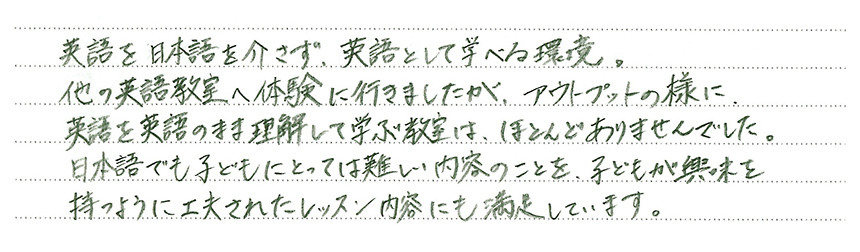 英語を日本語を介さず、英語として学べる環境。
他の英語教室へ体験に行きましたが、アウトプットの様に、
英語を英語のまま理解して学ぶ教室は、ほとんどありませんでした。
日本語でも子どもにとっては難しい内容のことを、子どもが興味を
持つように工夫されたレッスン内容にも満足しています。